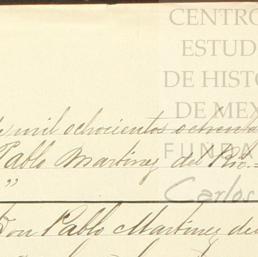 CENTRO
ESTUD
DE HISTO
DE MEX
FUNDA
Carlos
mil ochocientos ochenta
Pablo Martinez del Rio.=
"
Don Pablo Martinez de